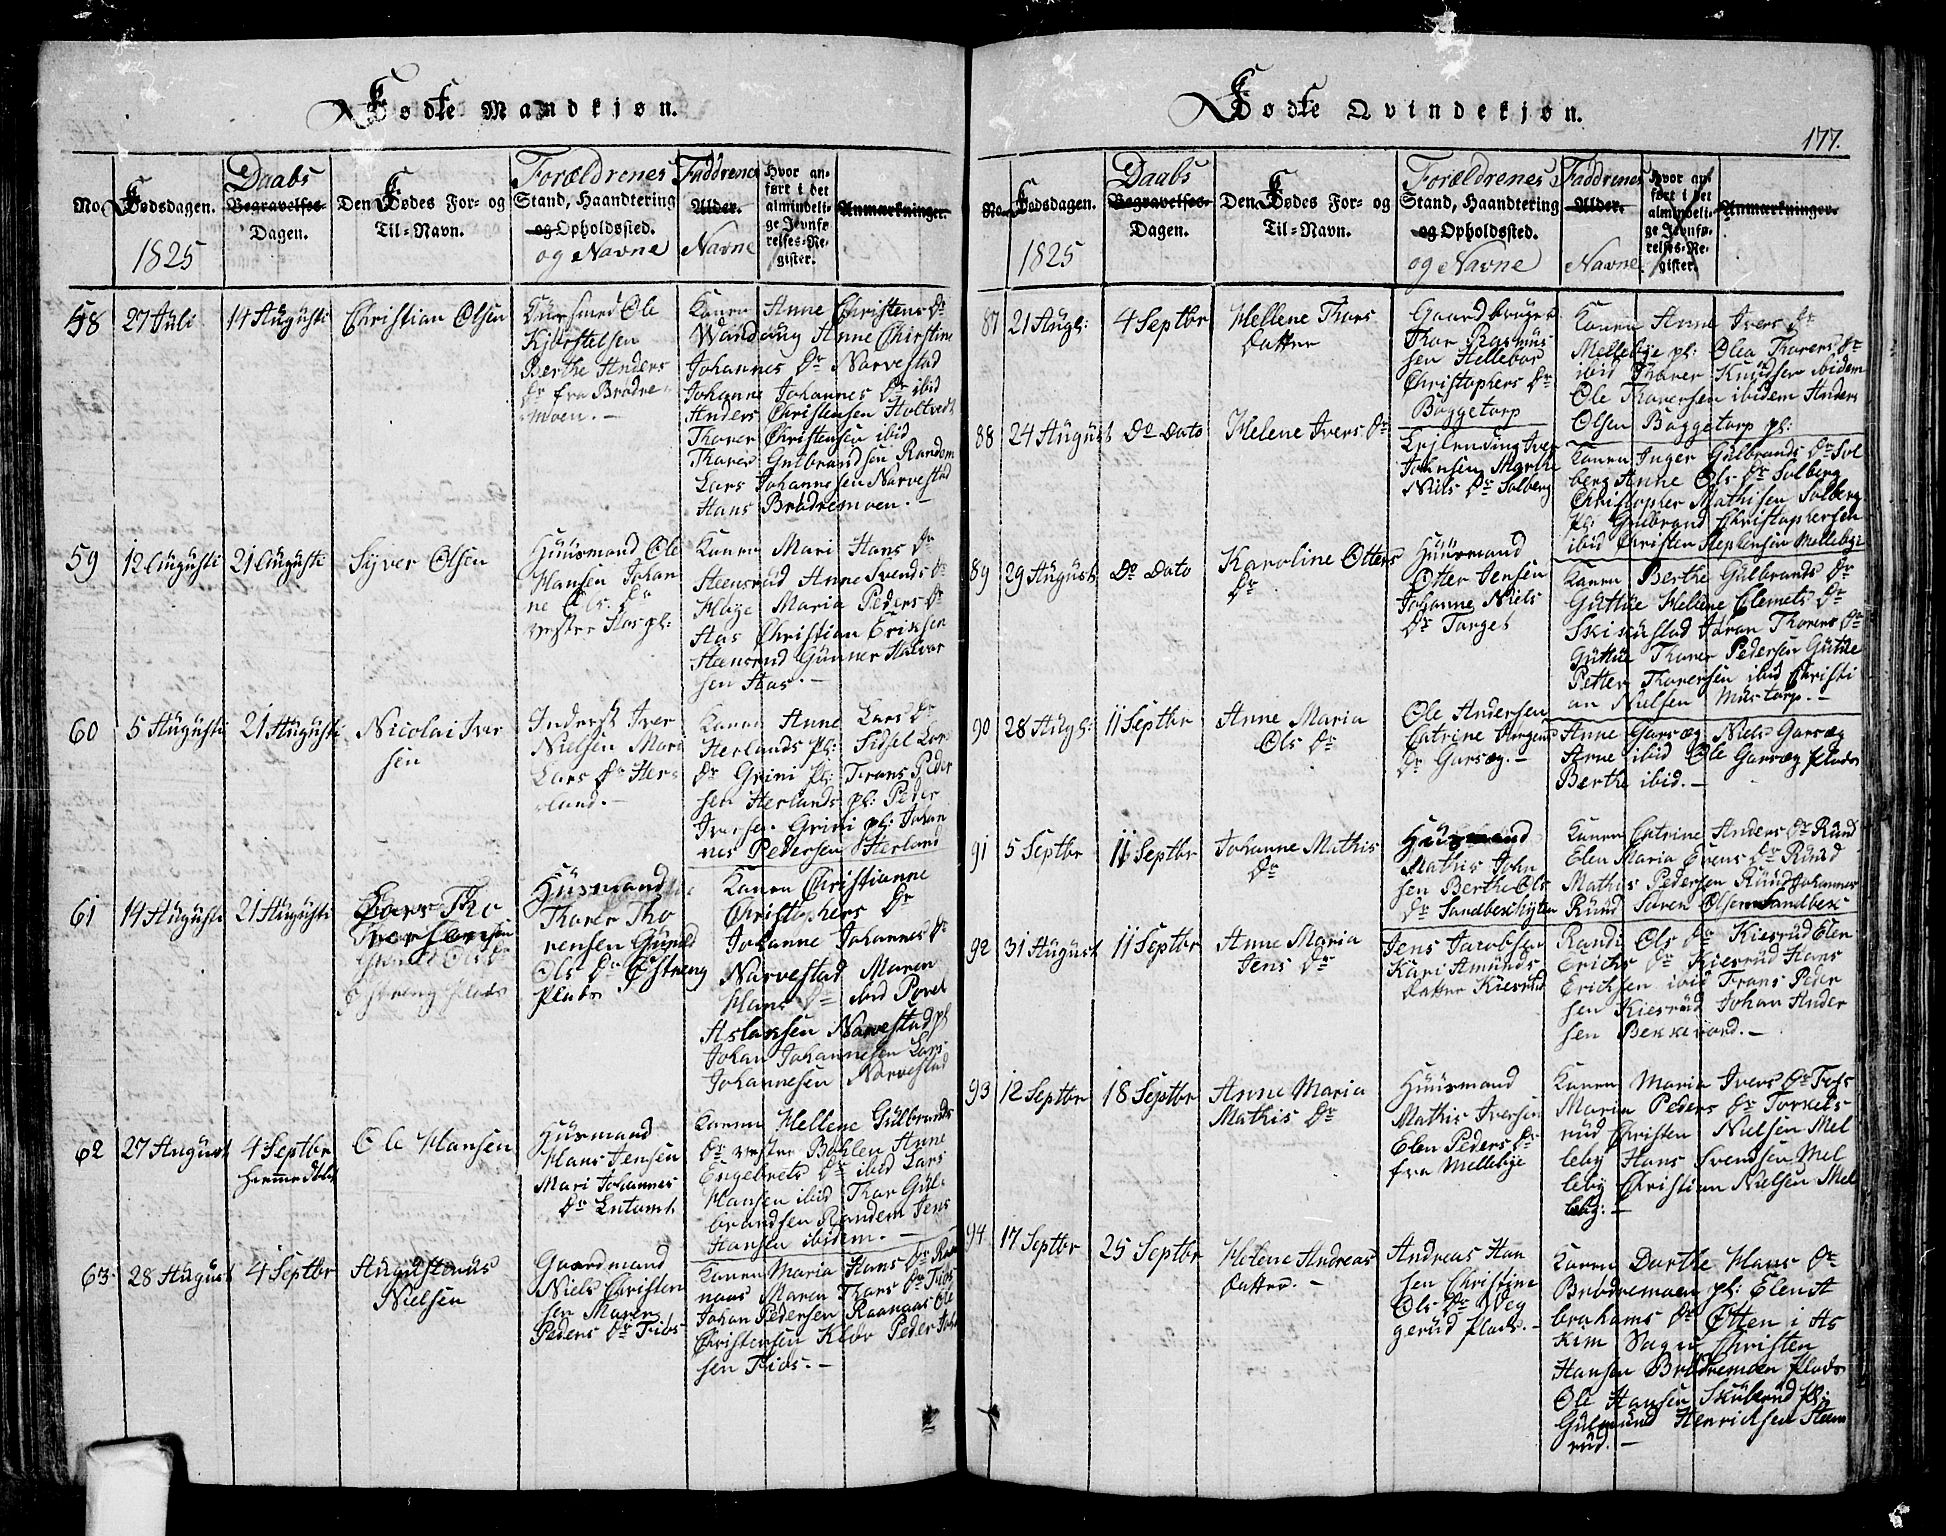 Fødte Mandkjøn.
No.
Fødsdagen.
1825
Daabs
Begravelses-
Dagen.
Den Fødes For- og
Til-Navn.
Forældrenes
Stand, Haandtering
og Opholdssted.
og Navne
Faddrenes
Alder.
Navne
Hvor an-
ført i det
almindeli-
ge Jevnfø-
relses-Re-
gister.
Anmærkninger.
58
27 Juli
14 Augusti
Christian Olsen
Huusmand Ole
Kjørstelsen
Berthe Anders
Dr fra Brødre-
moen. -
Konen Anne Christens Dr
Wandaug Anne Christine
Johannes Dr Narvestad
Johanne Johannes Dr ibid
Anders Christensen Holtvedt
Thorer Christensen ibid
Thorer Gulbrandsen Randem
Lars Johannesen Narvestad
Hans Brødremoen. -
59
12 Augusti
21 Augusti
Syver Olsen
Huusmand Ole
Hansen Johan
ne Ols. Dr
vestre Haspl:
Konen Mari Hans Dr
Steensrud Anne Svends Dr
Haje Maria Peders Dr
Has Christian Eriksen
Steensrud Gunner Halvor
sen Has. -
60
5 Augusti
21 Augusti
Nicolai Iver
sen
Inderst Iver
Nielsen Mari
Lars Dr Her-
land. -
Konen Anne Lars Dr
Herlands pl: Sidsel Lar
Dr Grini pl: Frans Peder
sen Herlands pl: Peder
Iversen Grini pl: Johan
nes Pedersen Herland
61
14 Augusti
21 Augusti
Lars Tho
rersen
Østreng plads
Huusmand
Thorer Tho
rersen Gunild
Ols Dr Østreng
Plads
Konen Christianne
Christophers Dr
Johanne Johannes Dr
Narvestad Maren
Hans Dr ibid Povel
Aslaksen Narvestad pl
Johan Johannesen Lars
Johannesen Narvestad
62
27 August
4 Septbr
hiemmedøbt
Ole Hansen
Huusmand
Hans Jensen
Mari Johannes
Dr Entomt
Konen Hellene Gulbrands
Dr vestre Bøhlen Anne
Engebrets Dr ibid Lars
Hansen ibid Thor Gul-
brandsen Randem Jens
Hansen ibidem. -
63.
28 August
4 Septbr
Augustenus
Nielsen
Gaardmand
Niels Christen
sen Maren
Peders Dr Fiøs
Konen Maria Hans Dr Raa
naas Maren Thors Dr Fiøs
Johan Pedersen Raanaas Ole
Christensen Kløv Peder Joh
sen Fiøs. -
Fødte Qvindekjøn.
177.
No.
Fødsdagen.
1825
Daabs
Begravelses-
Dagen.
Den Fødes For- og
Til-Navn.
Forældrenes
Stand, Haandtering
og Opholdssted.
og Navne
Faddrenes
Alder.
Navne
Hvor an-
ført i det
almindeli-
ge Jevnfø-
relses-Re-
gister.
Anmærkninger.
87
21 Augs:
4 Septbr
Hellene Thors
Datter
Gaardbruger
Thor Rasmus
sen Hellebor
Christophers Dr
Boggetorp
Konen Anne Ivers Dr
Mellebye pl: Olea Thorers Dr
ibid Thorer Knudsen ibidem
Ole Thorersen ibidem Anders
Olsen Boggetorp pl:
88
24 August
Do Dato
Helene Ivers Dr
Leilending Iver
Johnsen Marthe
Niels Dr Solberg
Konen Inger Gulbrands Dr Sol
berg Anne Ols Dr Solberg
Christopher Mathisen Solberg
pl: Gulbrand Christophersen
ibid Christen Stephensen Mellebye
89
29 August
Do Dato
Karoline Otters
Dr
Huusmand
Otter Jensen
Johanne Niels
Dr Torget
Konen Berthe Gulbrands Dr
Guttue Hellene Clemets Dr
Skikustad Joran Thorers Dr
Guttue Thorer Pedersen Guttue
Petter Thorersen ibid Christi
an Nielsen Mustorp. -
90
28 Augs:
11 Septbr
Anne Maria
Ols Dr
Ole Andersen
Catrine Jørgens
Dr Garsæg. -
Anne Garsæg Niels Garsæg
Arne ibid Ole Garsæg plads
Berthe ibid. -
91
5 Septbr
11 Septbr
Johanne Mathis
Dr
Huusmand
Mathis John
sen Berthe Ols
Dr Sandbechytten
Konen Catrine Anders Dr Rud
Elen Maria Evens Dr Ruud
Mathis Pedersen Ruud Johannes
Ruud Søren Olsen Sandbek
92
31 August
11 Septbr
Anne Maria
Jens Dr
Jens Jacobsen
Kari Amunds
Datter Kiesrud
Randi Ols Dr Kiesrud Elen
Erichs Dr Kiesrud Hans
Erichsen ibid Frans Peder
sen Kiesrud Johan Ander
sen Bekkevord. -
93
12 Septbr
18 Septbr
Anne Maria
Mathis Dr
Huusmand
Mathis Iversen
Elen Peders Dr
fra Mellebye
Konen Maria Ivers Dr Fosf
Maria Peders Dr Torkels
rud Christen Nielsen Mel
leby Hans Svendsen Mel
leby Christian Nielsen Mel
leby: -
94
17 Septbr
25 Septbr
Helene Andreas
Datter. -
Andreas Han
sen Christine
Ols Dr Veg
gerud plads. -
Konen Dorthe Hans Dr
Brødremoen pl: Elen A
brahams Dr Otten i As
kim Sogn Christen
Hansen Brødremoen plads
Ole Hansen Skulerud pl:
Gulmund Henrichsen Steen
rud. -